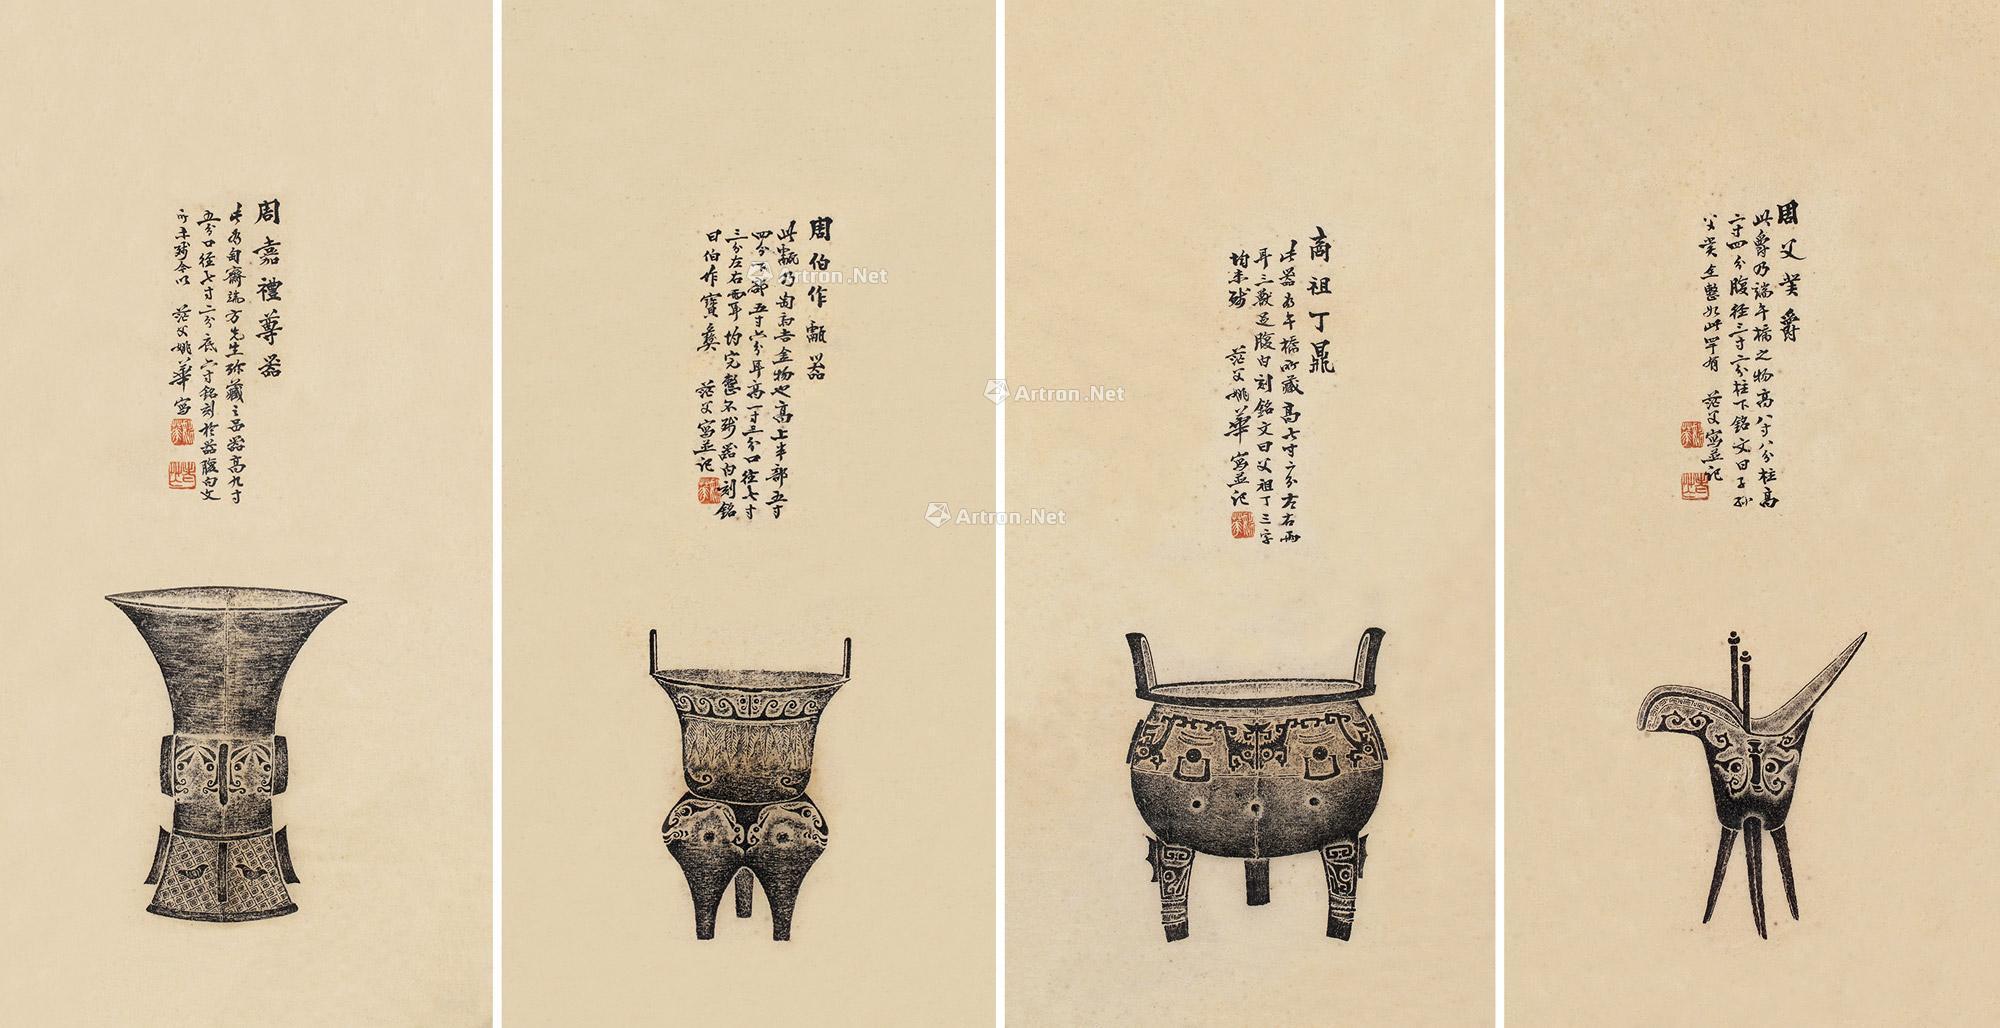 周嘉禮尊器
此為匋齋端方先生珍藏之品器高九寸
五分口徑七寸二分底六寸銘刻於器腹內文
可未殘今以 茫父姚華寫
周伯作甗器
此甗乃匋齋吉金物也高上半部五寸
四分下部五寸六分耳高一寸三分口徑七寸
三分左右兩耳均完整不殘器內刻銘
曰伯作寶彝 茫父寫並記
商祖丁鼎
此器為午橋所藏高七寸六分左右兩
耳三獸足腹內刻銘文曰父祖丁三字
均未殘 茫父姚華寫並記
周父癸爵
此爵乃端午橋之物高八寸八分柱高
二寸四分腹徑三寸二分柱下銘文曰子孫
父癸完整如此罕有 茫父寫並記
Artron.Net
Artron.Net
Artron.Net